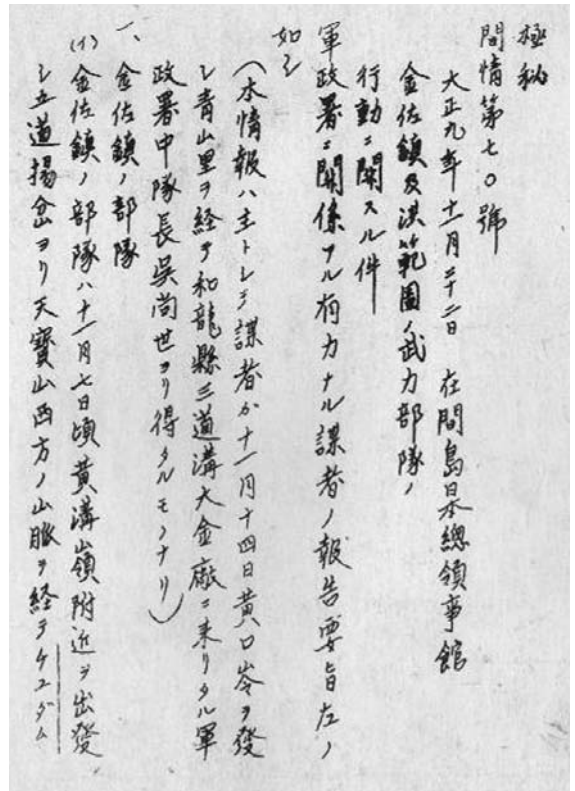 極秘
間情第七〇號
大正九年十一月二十二日 在間島日本總領事館
金佐鎮及洪範圖ノ武力部隊ノ
行動ニ関スル件
軍政署ニ関係アル有力ナル諜者ノ報告要旨左ノ
如シ
(本情報ハ主トシテ諜者カ十一月十四日黄口岺ヲ發
シ青山里ヲ経テ和龍縣三道溝大金廠ニ来リタル軍
政署中隊長吳尚世ヨリ得タルモノナリ)
一、金佐鎮ノ部隊
(イ)金佐鎮ノ部隊ハ十一月七日頃黄溝嶺附近ヲ出發
シ五道揚岔ヨリ天寶山西方ノ山脈ヲ経テケユダム